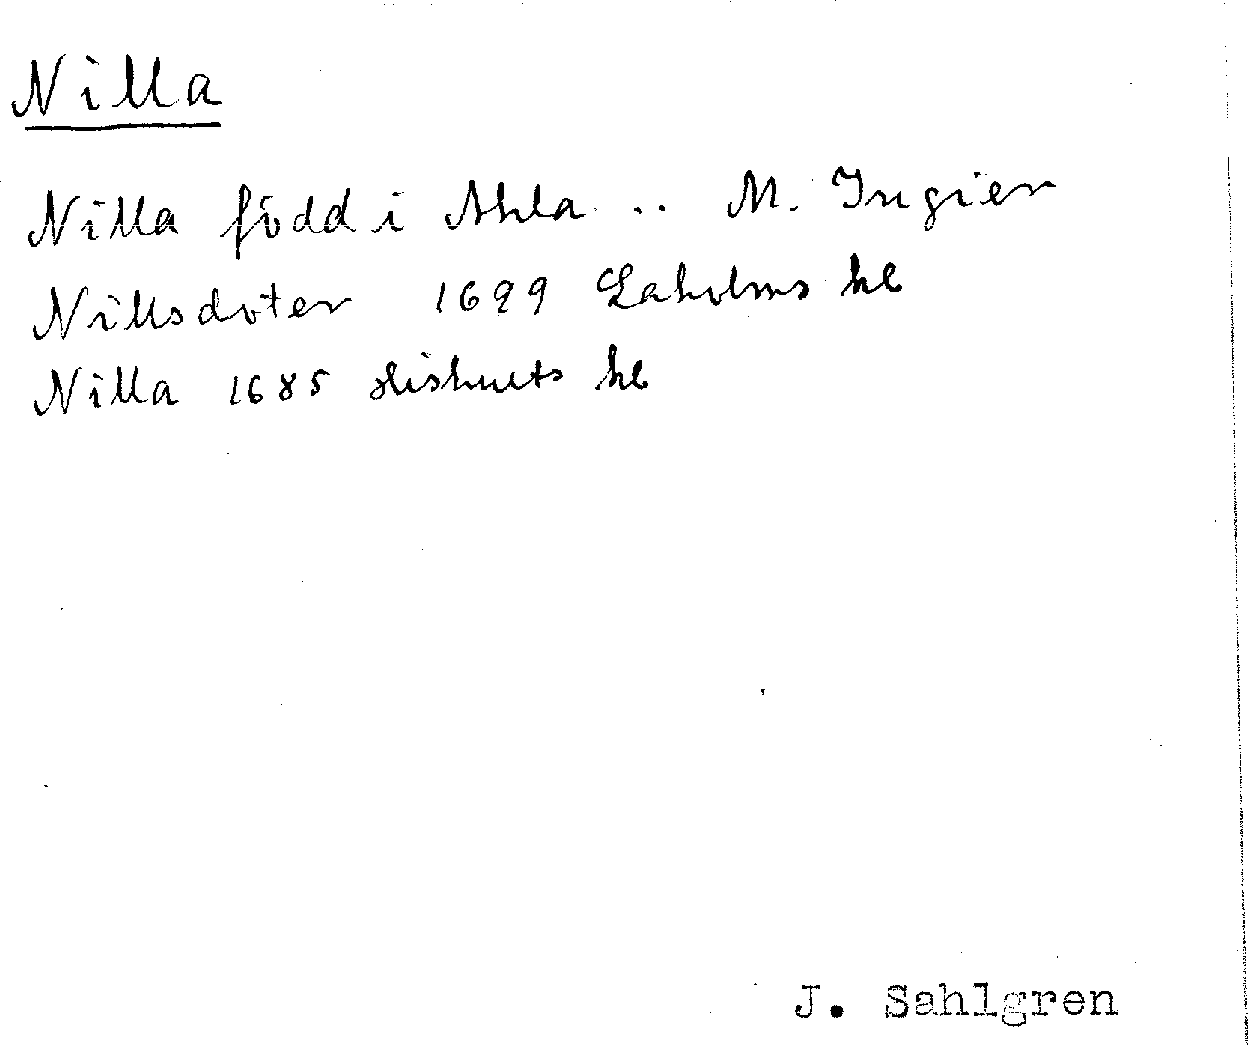 Nilla
Nilla född i Ahla .. M. Ingier
Nillsdoter 1699 Laholms kb
Nilla 1685 Hishults kb
J. Sahlgren